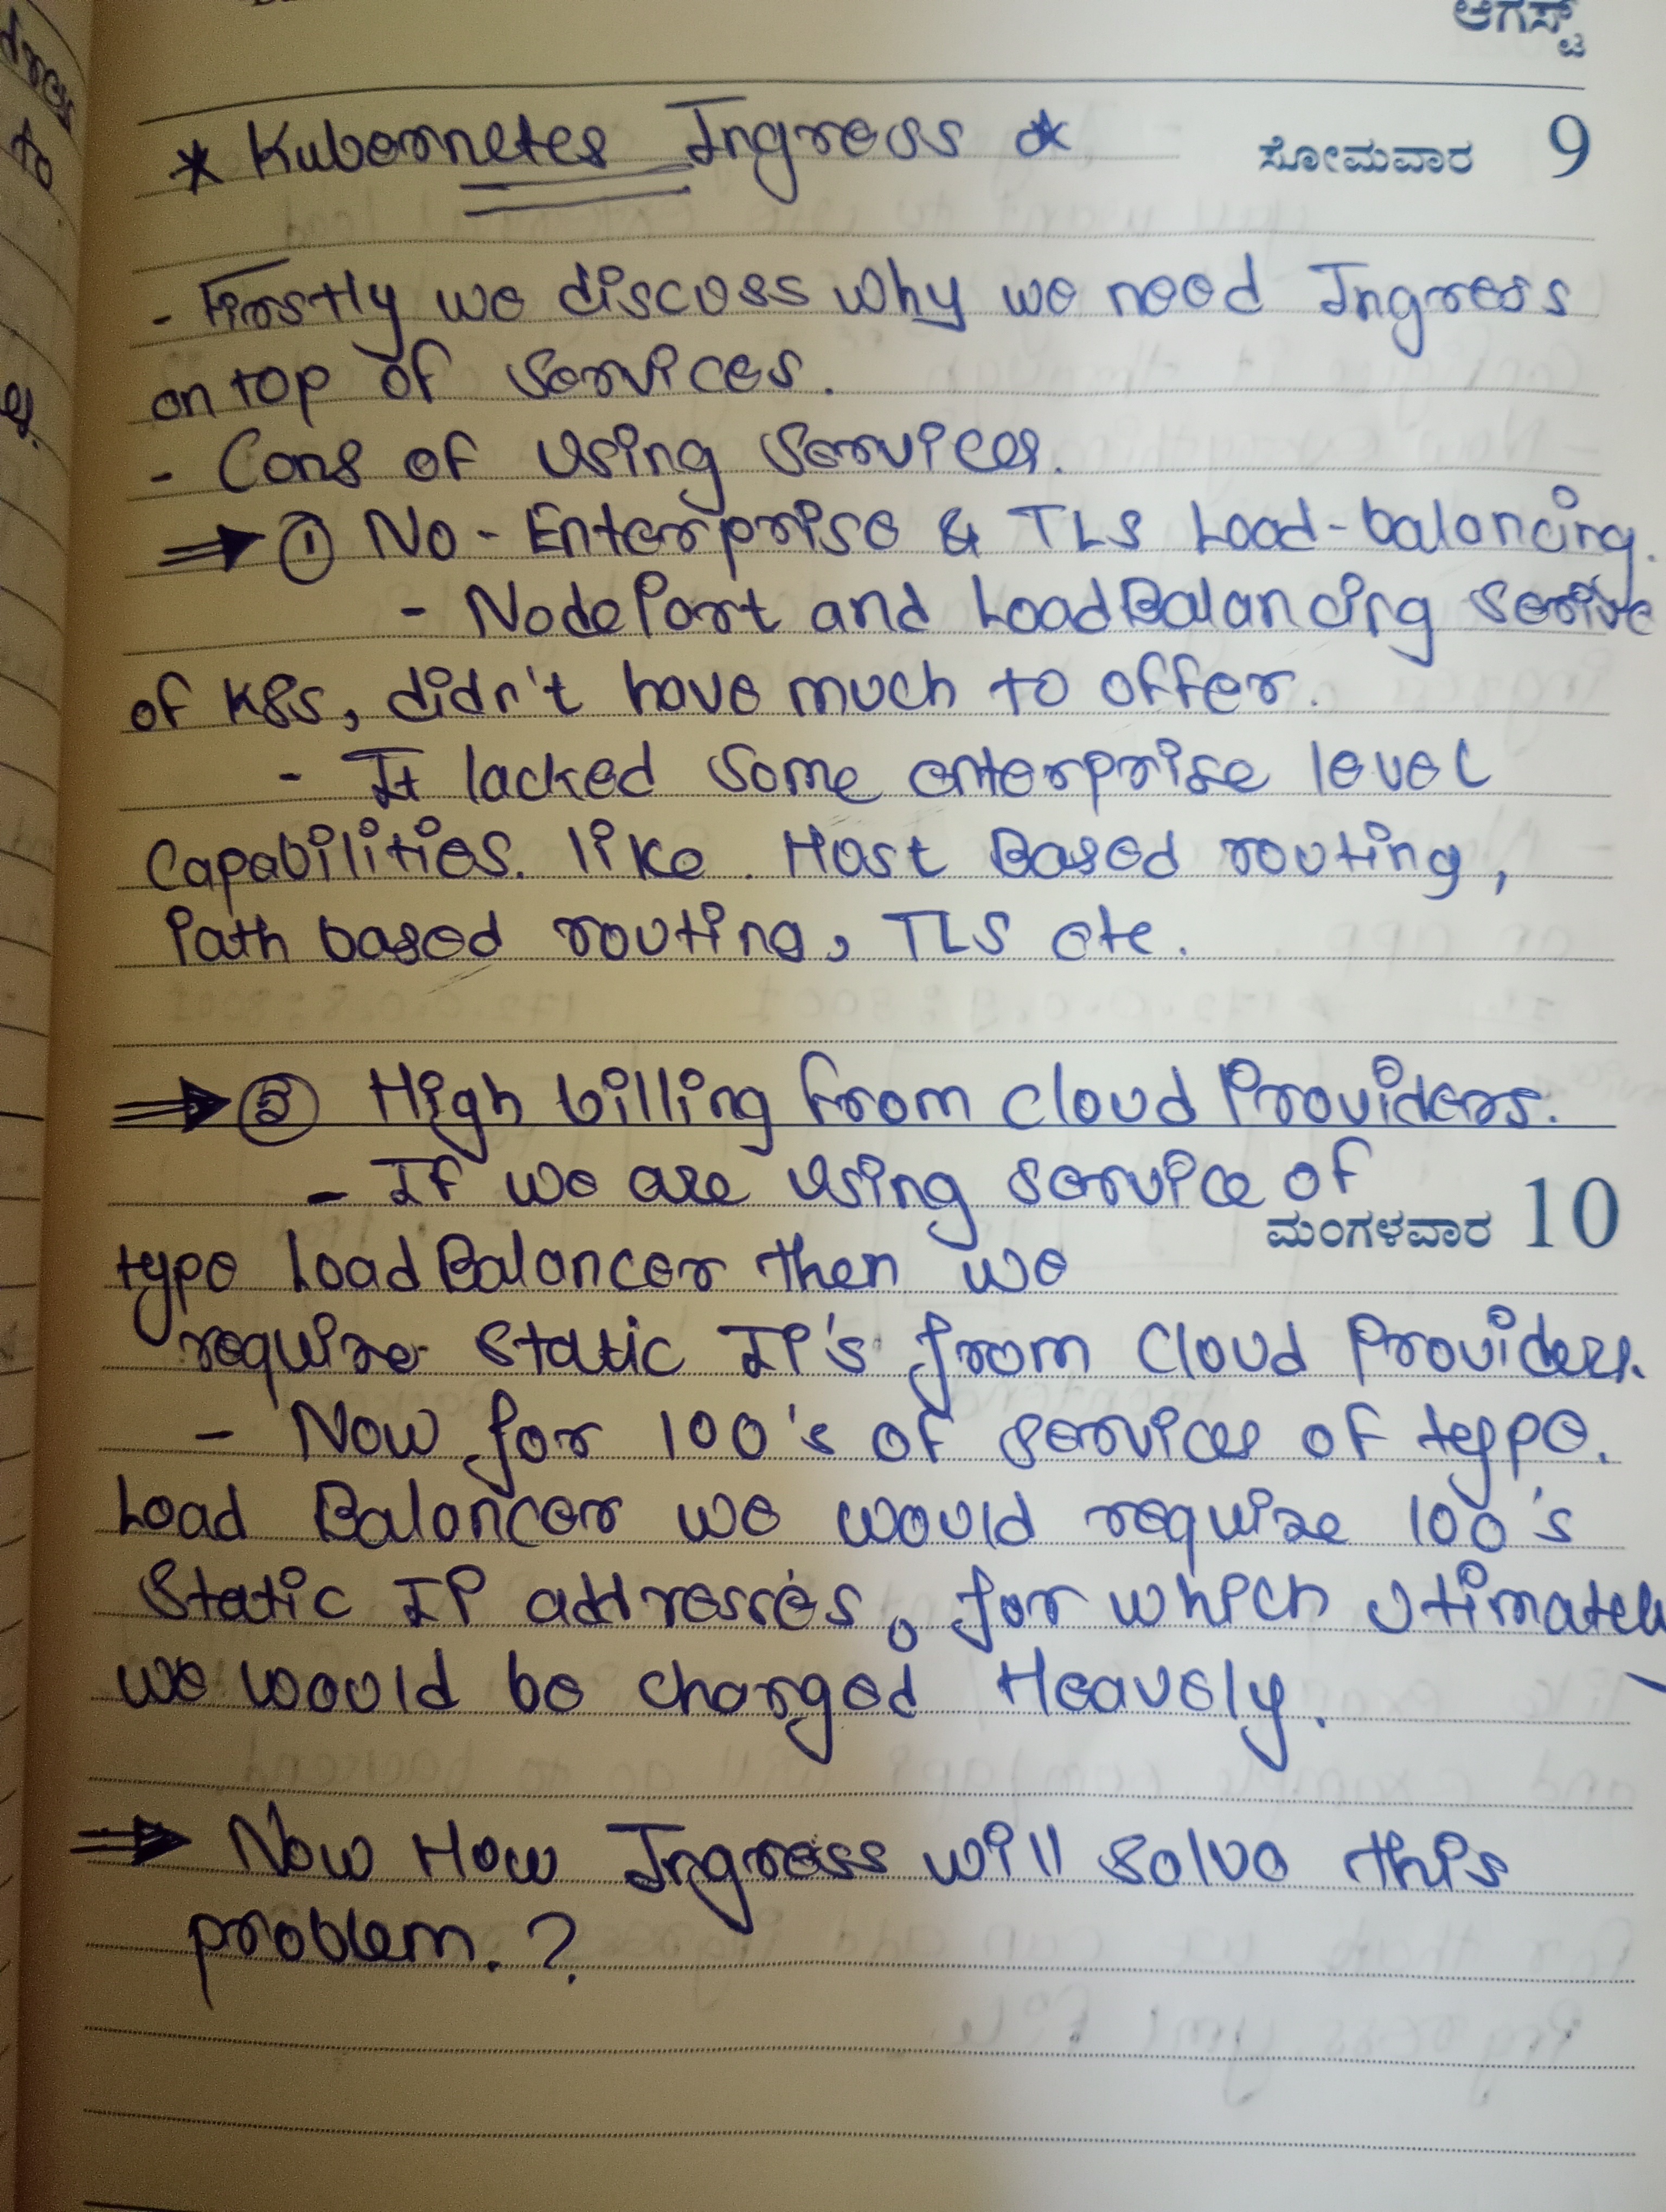 ಆಗಸ್ಟ್
* Kubernetes Ingress *
ಸೋಮವಾರ 9
- Firstly we discuss why we need Ingress
on top of services.
- Cons of using services.
⇒ ① No - Enterprise & TLS Load-balancing.
- NodePort and LoadBalancing
of K8s, didn't have much to offer.
- It lacked some enterprise level
Capabilities. like . Host Based routing,
Path based routing, TLS etc.
⇒ ② High billing from cloud Providers.
- If we are using service of
ಮಂಗಳವಾರ 10
type LoadBalancer then we
require static IP's from Cloud Providers.
- Now for 100's of services of type.
Load Balancer we would require 100's
Static IP addresses, for which
we would be charged Heavely.
⇒ Now How Ingress will solve this
problem. ?
to